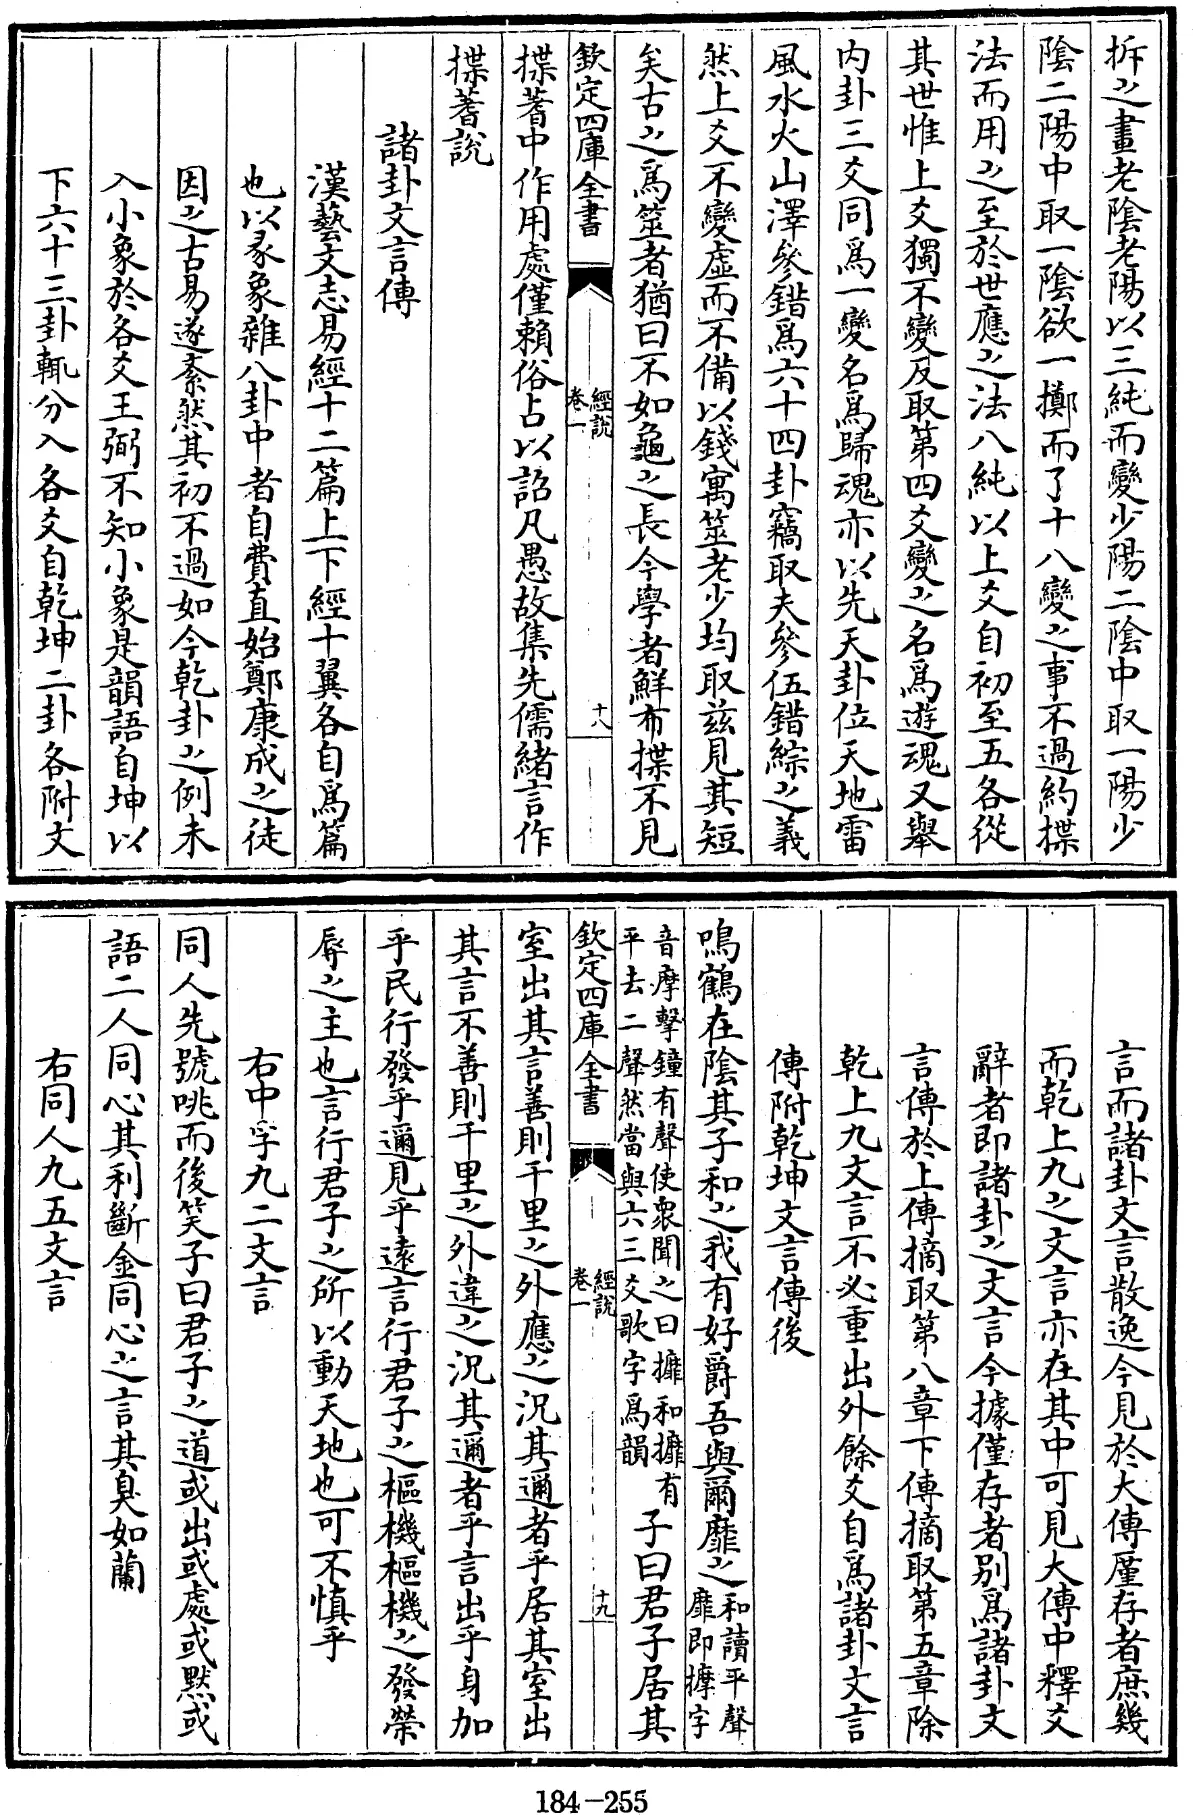 拆之畫老陰老陽以三純而變少陽二陰中取一陽少
陰二陽中取一陰欲一擲而了十八變之事不過約揲
法而用之至於世應之法八純以上爻自初至五各從
其世惟上爻獨不變反取第四爻變之名爲遊魂又舉
内卦三爻同爲一變名爲歸魂亦以先天卦位天地雷
風水火山澤參錯爲六十四卦竊取夫參伍錯綜之義
然上爻不變虛而不備以錢寓筮老少均取兹見其短
矣古之爲筮者猶曰不如龜之長今學者鮮布揲不見
欽定四庫全書
經説
卷一
十八
揲蓍中作用處僅賴俗占以詔凡愚故集先儒緒言作
揲蓍説
諸卦文言傳
漢藝文志易經十二篇上下經十翼各自爲篇
也以彖象雜八卦中者自費直始鄭康成之徒
因之古易遂紊然其初不過如今乾卦之例未
入小象於各爻王弼不知小象是韻語自坤以
下六十三卦輒分入各爻自乾坤二卦各附文
言而諸卦文言散逸今見於大傳厪存者庶幾
而乾上九之文言亦在其中可見大傳中釋爻
辭者即諸卦之文言今據僅存者别爲諸卦文
言傳於上傳摘取第八章下傳摘取第五章除
乾上九文言不必重出外餘爻自爲諸卦文言
傳附乾坤文言傳後
鳴鶴在陰其子和之我有好爵吾與爾靡之和讀平聲
靡即摩字
音摩擊鐘有聲使衆聞之曰㩦和㩦有
平去二聲然當與六三爻歌字爲韻
子曰君子居其
欽定四庫全書
經説
卷一
十九
室出其言善則千里之外應之況其邇者乎居其室出
其言不善則千里之外違之況其邇者乎言出乎身加
乎民行發乎邇見乎遠言行君子之樞機樞機之發榮
辱之主也言行君子之所以動天地也可不慎乎
右中孚九二文言
同人先號咷而後笑子曰君子之道或出或處或默或
語二人同心其利斷金同心之言其臭如蘭
右同人九五文言
184-255